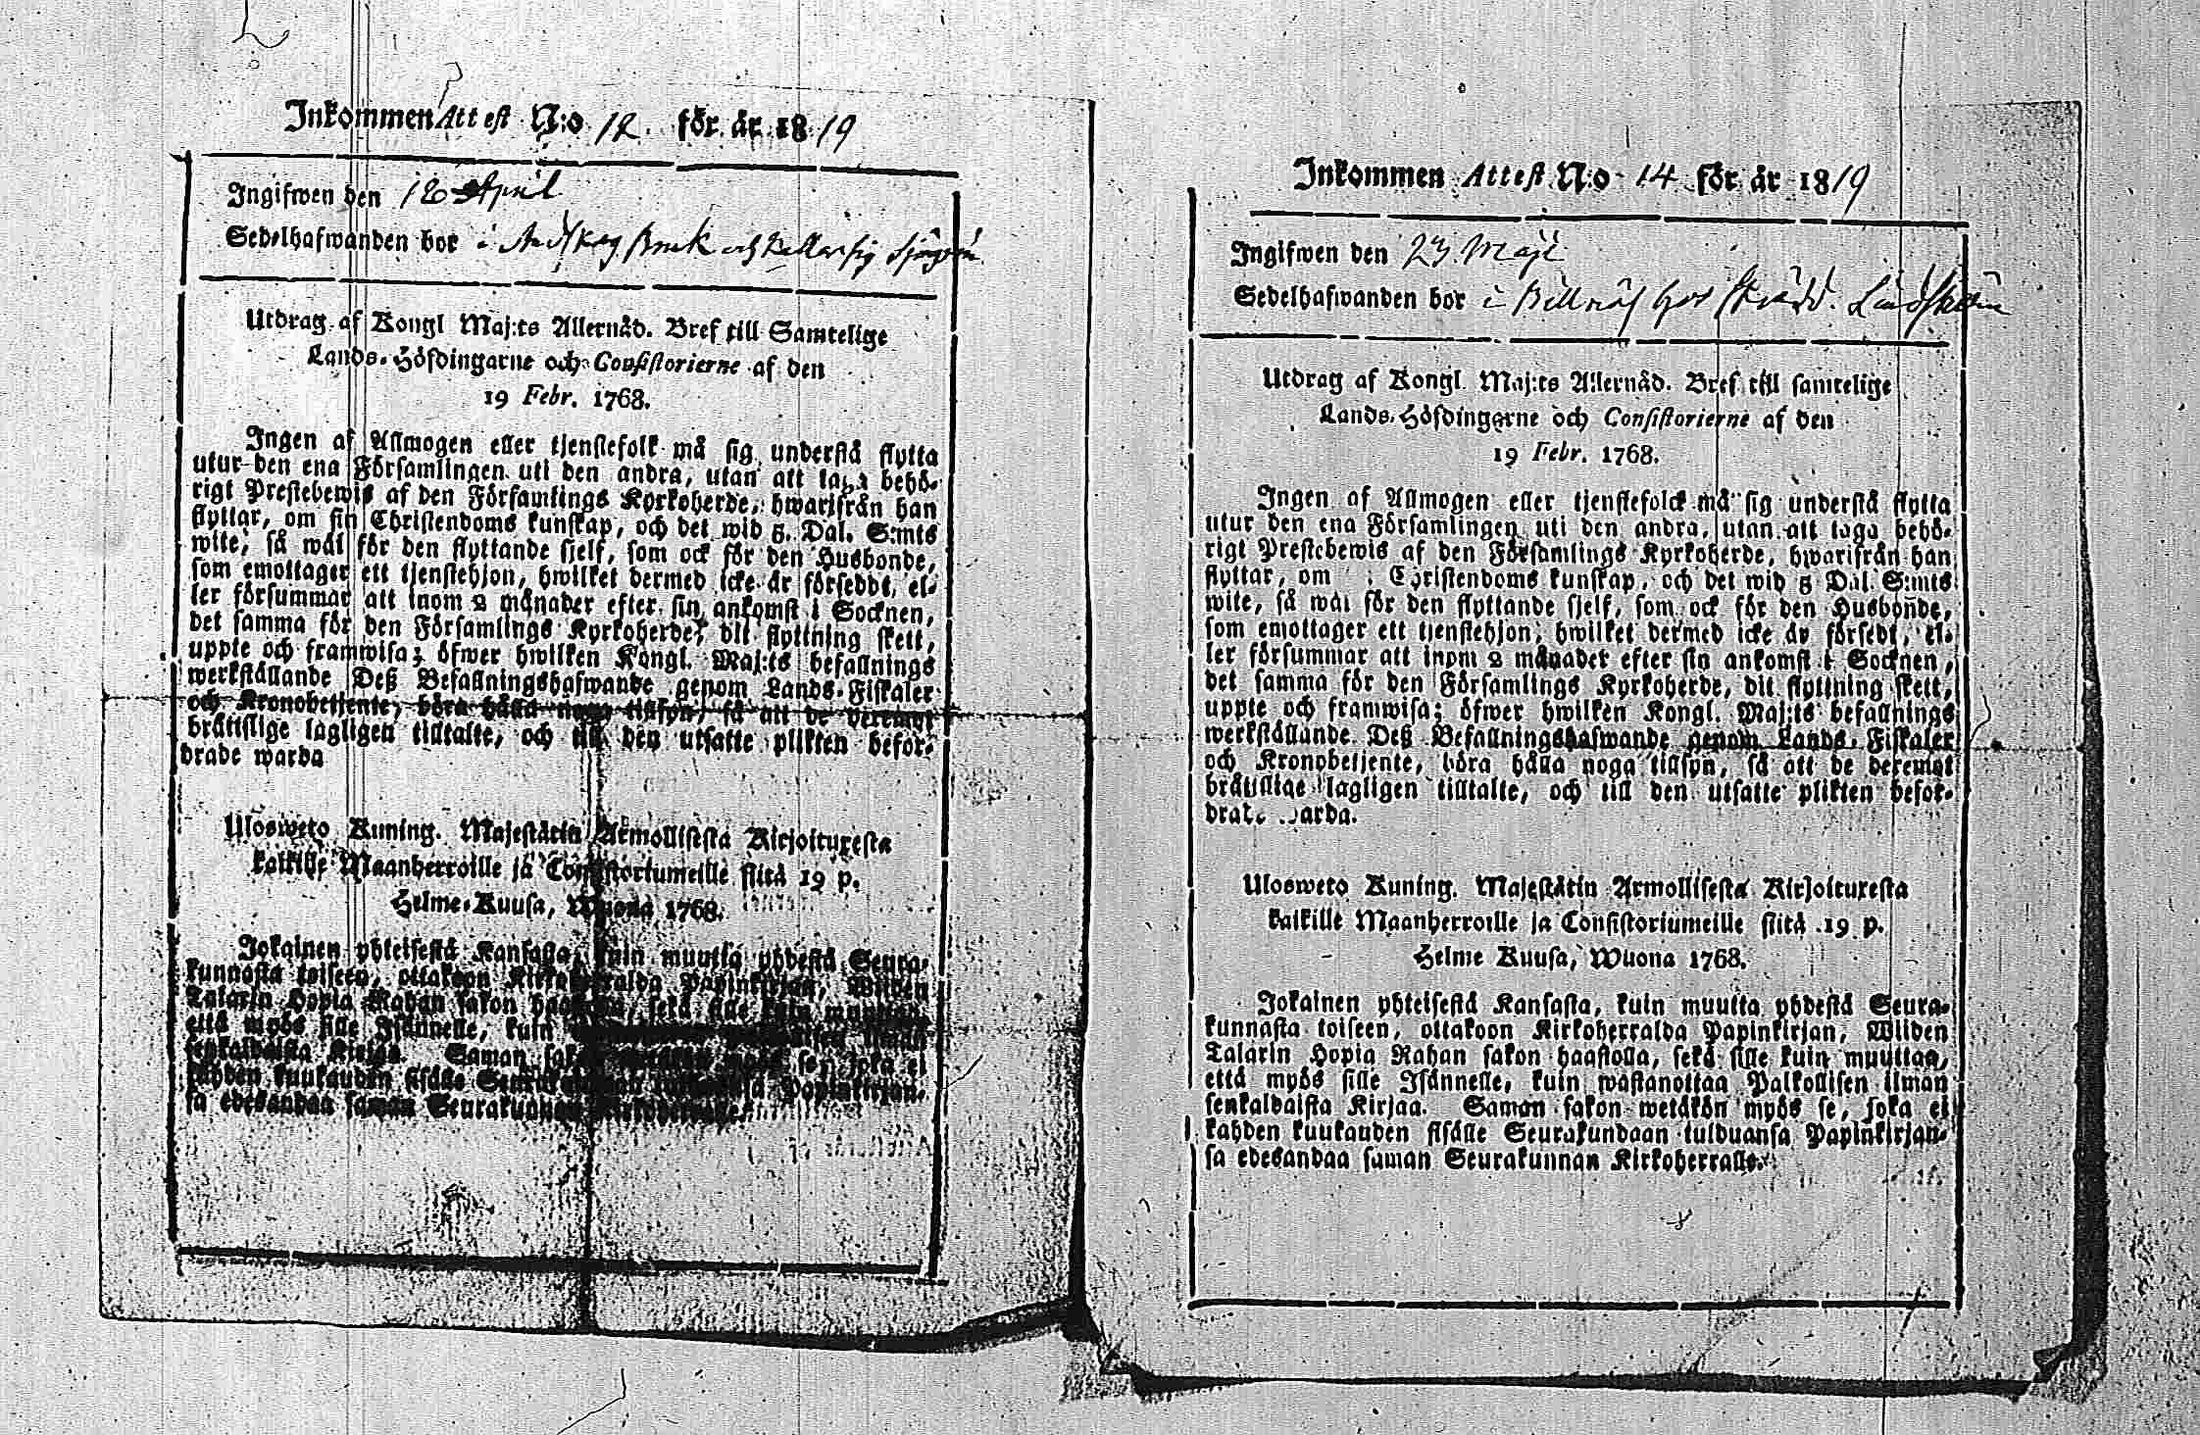 Inkommen Attest N:o 12. för år 1819
Ingifwen den 18 April
Sedelhafwanden bor i Bruk och
Utdrag af Kongl Maj:ts Allernåd. Bref till Samtelige
Lands-Höfdingarne och Consistorierne af den
19 Febr. 1768.
Ingen af Allmogen eller tjenstefolk må sig understå flytta
utur den ena Församlingen uti den andra, utan att taga behö-
rigt Prestebewis af den Församlings Kyrkoherde, hwarifrån han
flyttar, om sin Christendoms kunskap, och det wid 5. Dal. S:mts
wite, så wäl för den flyttande sjelf, som ock för den Husbonde,
som emottager ett tjenstehjon, hwilket dermed icke är förseddt, el-
ler försummar att inom 2 månader efter sin ankomst i Socknen,
det samma för den Församlings Kyrkoherde, dit flyttning skett,
uppte och framwisa; öfwer hwilken Kongl. Maj:ts befallnings
werkställande Deß Befallningshafwande genom Lands-Fiskaler
och Kronobetjente, böra hålla noga tillsyn, så att de deremot
bråttslige lagligen tilltalte, och till den utsatte plikten befor-
drade warda
Ulosweto Kuning. Majestätin Armollisesta Kirjoituxesta
kaikille Maanherroille ja Consistoriumeille siitä 19 p.
Helme-Kuusa, Wuona 1768.
Jokainen yhteisestä Kansasta, kuin muutta yhdestä Seura-
kunnasta toiseen, ottakoon Kirkoherralda Papinkirjan, Wiiden
Talarin Hopia Rahan sakon haastolla, sekä sille kuin muuttaa,
että myös sille Isännelle, kuin ilman
senkaldaista Kirjaa. Saman sakon myös se, joka ei
kahden kuukauden sisälle Seurakundaan Papinkirjan-
sa edesandaa saman Seurakunnan Kirkoherralle.
Inkommen Attest N:o 14 för år 1819
Ingifwen den 23 Maji
Sedelhafwanden bor i Billnäs hos Lindström
Utdrag af Kongl. Maj:ts Allernåd. Bref till samtelige
Lands-Höfdingarne och Consistorierne af den
19 Febr. 1768.
Ingen af Allmogen eller tjenstefolck må sig understå flytta
utur den ena Församlingen uti den andra, utan att taga behö-
rigt Prestebewis af den Församlings Kyrkoherde, hwarifrån han
flyttar, om Christendoms kunskap, och det wid 5 Dal. S:mts
wite, så wäl för den flyttande sjelf, som ock för den Husbonde,
som emottager ett tjenstehjon, hwilket dermed icke är försedt, el-
ler försummar att inom 2 månader efter sin ankomst i Socknen,
det samma för den Församlings Kyrkoherde, dit flyttning skett,
uppte och framwisa; öfwer hwilken Kongl. Maj:ts befallnings
werkställande Deß Befallningshafwande genom Lands-Fiskaler
och Kronobetjente, böra hålla noga tillsyn, så att de deremot
bråttslige lagligen tilltalte, och till den utsatte plikten befor-
drade warda.
Ulosweto Kuning. Majestätin Armollisesta Kirjoituxesta
kaikille Maanherroille ja Consistoriumeille siitä 19 p.
Helme Kuusa, Wuona 1768.
Jokainen yhteisestä Kansasta, kuin muutta yhdestä Seura-
kunnasta toiseen, ottakoon Kirkoherralda Papinkirjan, Wiiden
Talarin Hopia Rahan sakon haastolla, sekä sille kuin muuttaa,
että myös sille Isännelle, kuin wastanottaa Palkollisen ilman
senkaldaista Kirjaa. Saman sakon wetäkön myös se, joka ei
kahden kuukauden sisälle Seurakundaan tulduansa Papinkirjan-
sa edesandaa saman Seurakunnan Kirkoherralle.